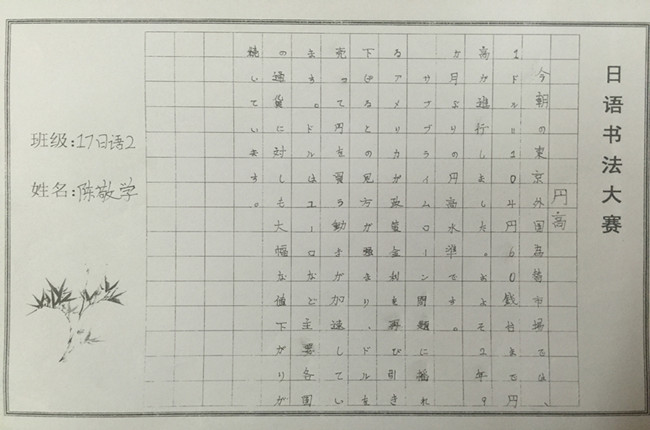 日语书法大赛
円高
今朝の東京外国為替市場では、
1ドル=104円60銭まで円
高が進行しました。およそ2年9
カ月ぶりの円高水準です。
サブプライムローン問題に揺れ
るアメリカが政策金利を再び引き
下げるとの見方が強まり、ドルを
売って円を買う動きが加速してい
ます。ドルはユーロなど主要各国
の通貨に対しも大幅な値下がりが
続いています。
班级:17日语2
姓名:陈敬学